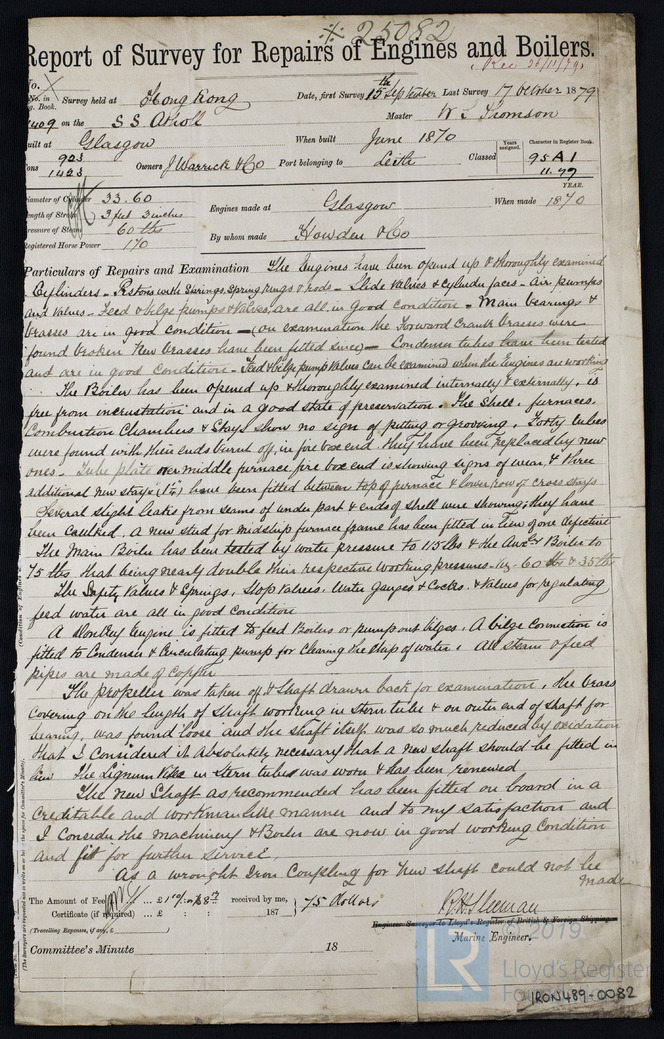 ※ 25082
Report of Survey for Repairs of Engines and Boilers.
Rec 26/11/79
No.
No. in Reg. Book. Survey held at Hong Kong Date, first Survey 15th September Last Survey 17 October 1879
409 on the S S Master W Thomson
Built at Glasgow When built June 1870
Tons 923 1423 Owners J Warrick & Co Port belonging to Leith Classed Years assigned. Character in Register Book. 95 A 1 11.77
Diameter of Cylinder 33.60
Length of Stroke 3 feet 3 inches
Pressure of Steam 60 lbs
Registered Horse Power 170
Engines made at Glasgow When made YEAR. 1870
By whom made Howden & Co
Particulars of Repairs and Examination The Engines have been opened up & thoroughly examined
Cylinders - Pistons with Springs, Spring rings & rods - Slide valves & Cylinder faces - air pumps
and valves - Feed & bilge pumps & valves, are all in good condition - Main bearings &
brasses are in good condition - (on examination the Forward Crank brasses were
found broken New brasses have been fitted since) - Condenser tubes have been tested
and are in good condition - Feed & bilge pump valves can be examined when the Engines are working
The Boiler has been opened up & thoroughly examined internally & externally, is
free from incrustation and in a good state of preservation. The Shell, furnaces,
Combustion Chambers & Stays show no sign of pitting or grooving. Forty tubes
were found with their ends burnt off, in fire box end they have been replaced by new
ones - Tube plate over middle furnace fire box end is showing signs of wear, & three
additional new stays have been fitted between top of furnace & lower row of cross stays
Several slight leaks from seams of under part & ends of shell were showing; they have
been caulked. A new stud for midship furnace frame has been fitted in lieu of one defective
The Main Boiler has been tested by water pressure to 115 lbs & the Boiler to
75 lbs that being nearly double their respective working pressures - 60 lbs & 35 lbs
The Safety Valves & Springs, Stop Valves, Water Gauges & Cocks, & Valves for regulating
feed water are all in good condition
A Donkey Engine is fitted to feed Boilers or pump out bilges. A bilge Connection is
fitted to Condenser & Circulating pump for clearing the ship of water. All steam & feed
pipes are made of copper
The propeller was taken off & shaft drawn back for examination, the brass
covering on the length of shaft working in stern tube & on outer end of shaft for
bearing, was found loose and the shaft itself was so much reduced by oxidation
that I considered it absolutely necessary that a new shaft should be fitted in
lieu The Lignum Vitae in stern tubes was worn & has been renewed
The new Shaft as recommended has been fitted on board in a
creditable and workmanlike manner and to my satisfaction and
I consider the machinery & Boiler are now in good working condition
and fit for further service.
As a wrought Iron Coupling for new shaft could not be
made
The Amount of Fee ... £ received by me, 75 dollars
Certificate (if required) ... £ : : 187
(Travelling Expenses, if any, £ )
Engineer Surveyor to Lloyd's Register of British & Foreign Shipping.
Marine Engineer.
Committee's Minute 18
LR © 2019
Lloyd's Register
IRON489-0082